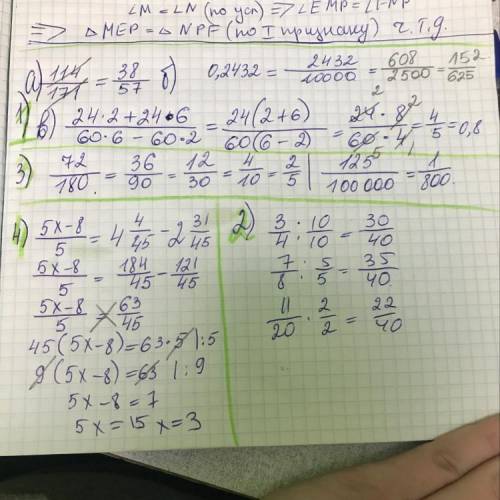 ∠M = ∠N (по усл) ⟹ ∠EMP = ∠FNP
⟹ △MEP = △NPF (по I признаку) ч.т.д.
а) 114/171 = 38/57 б) 0,2432 = 2432/10000 = 608/2500 = 152/625
1) в) (24·2+24·6)/(60·6-60·2) = 24(2+6)/60(6-2) = 24·8/60·4 = 4/5 = 0,8
3) 72/180 = 36/90 = 12/30 = 4/10 = 2/5 | 125/100 000 = 1/800.
4) (5x-8)/5 = 4 4/45 - 2 31/45
(5x-8)/5 = 184/45 - 121/45
(5x-8)/5 = 63/45
45(5x-8)=63·5 |:5
9(5x-8)=63 |:9
5x-8=7
5x=15 x=3
2) 3/4 : 10/10 = 30/40
7/8 : 5/5 = 35/40.
11/20 : 2/2 = 22/40